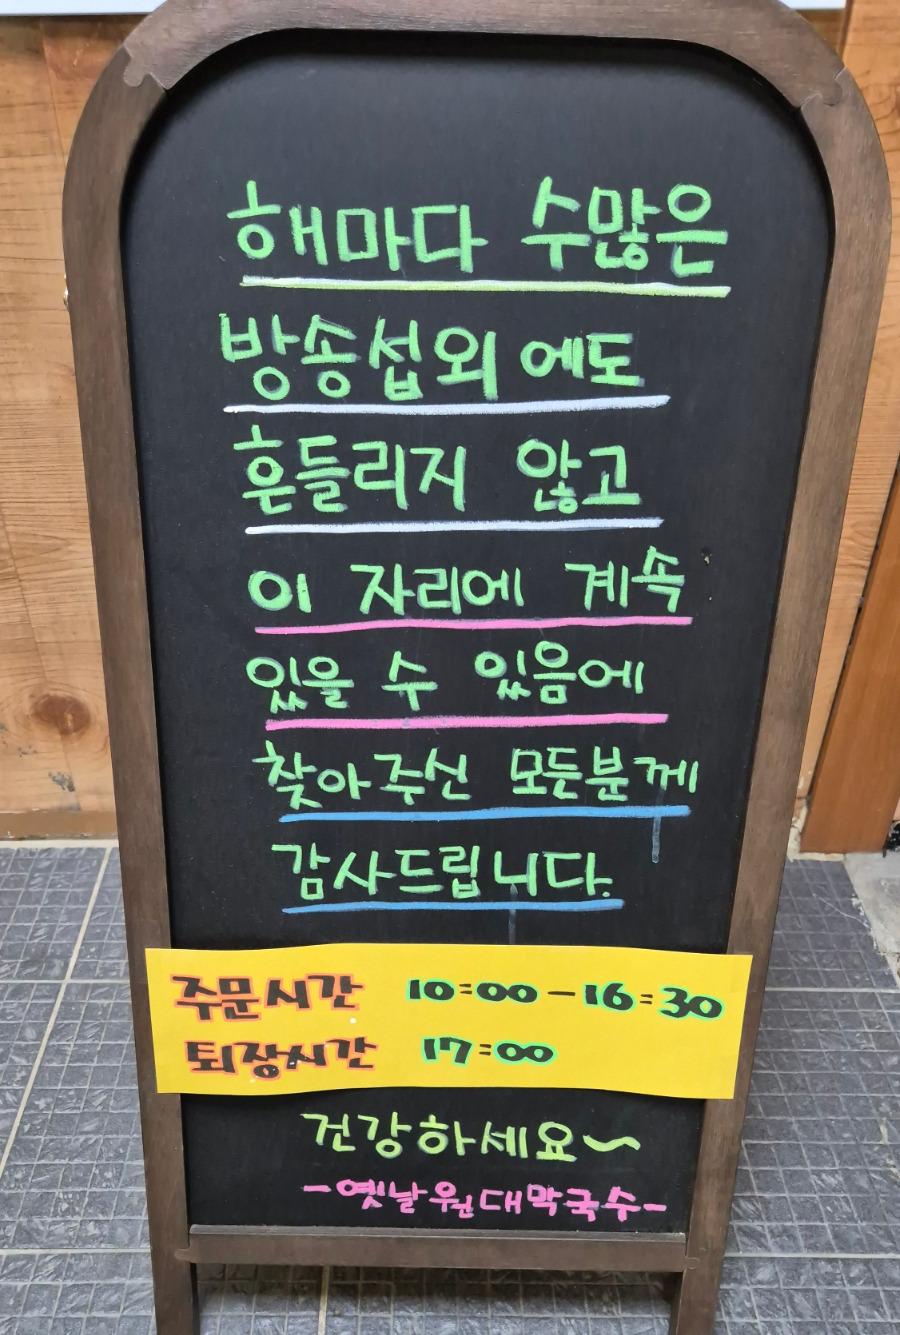 해마다 수많은
방송섭외에도
흔들리지 않고
이 자리에 계속
있을 수 있음에
찾아주신 모든분께
감사드립니다.
주문시간 10:00-16:30
퇴장시간 17:00
건강하세요~
-옛날원대막국수-